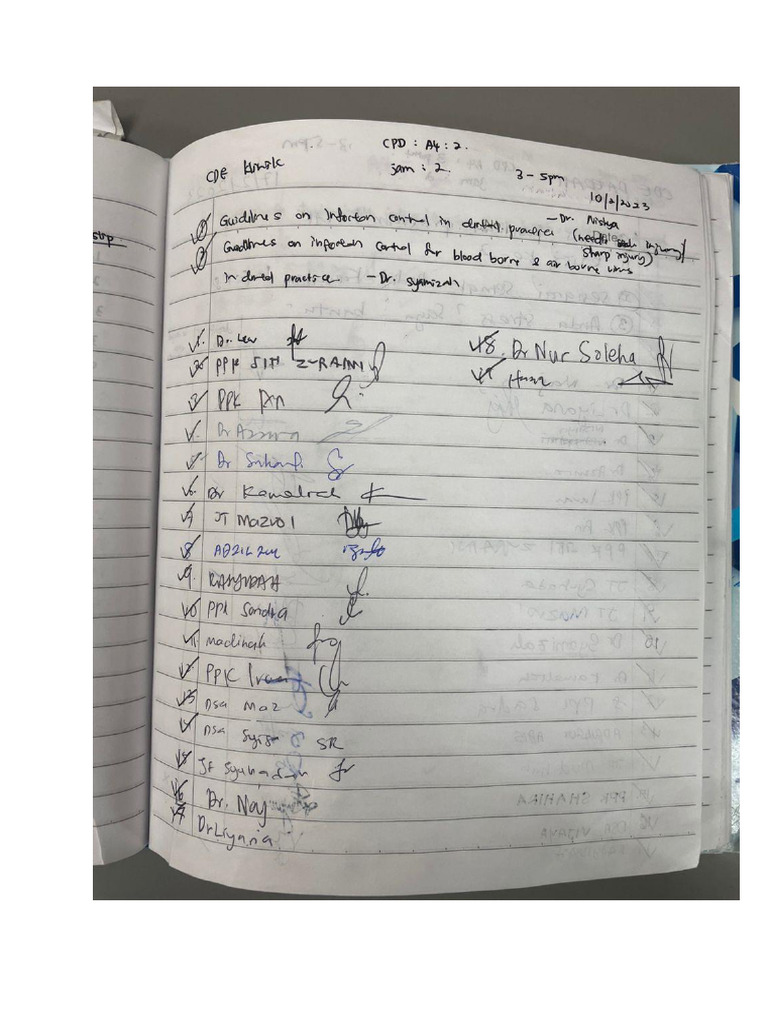 CPD : A4 : 2.
CDE Klinik jam : 2. 3 - 5pm
10/2/2023
① Guidelines on Infection control in dental practice (needle injury/ sharp injury) - Dr. Nishya
② Guidelines on infection control for blood borne & air borne virus
in dental practice. - Dr. Syamizah
1. Dr. Lew
2. PPK SITI Z-RAINI
3. PPK An
4. Dr Azzura
5. Dr
6. Dr Kamalrah
7. JT Mazvol
8.
9.
10. PPK Sandra
11. Madinah
12. PPK
13. DSA Maz
14. DSA SR
15. JT Syuhadah
16. Dr. Naj
17. Dr Liyana
18. Dr Nur Soleha
19.